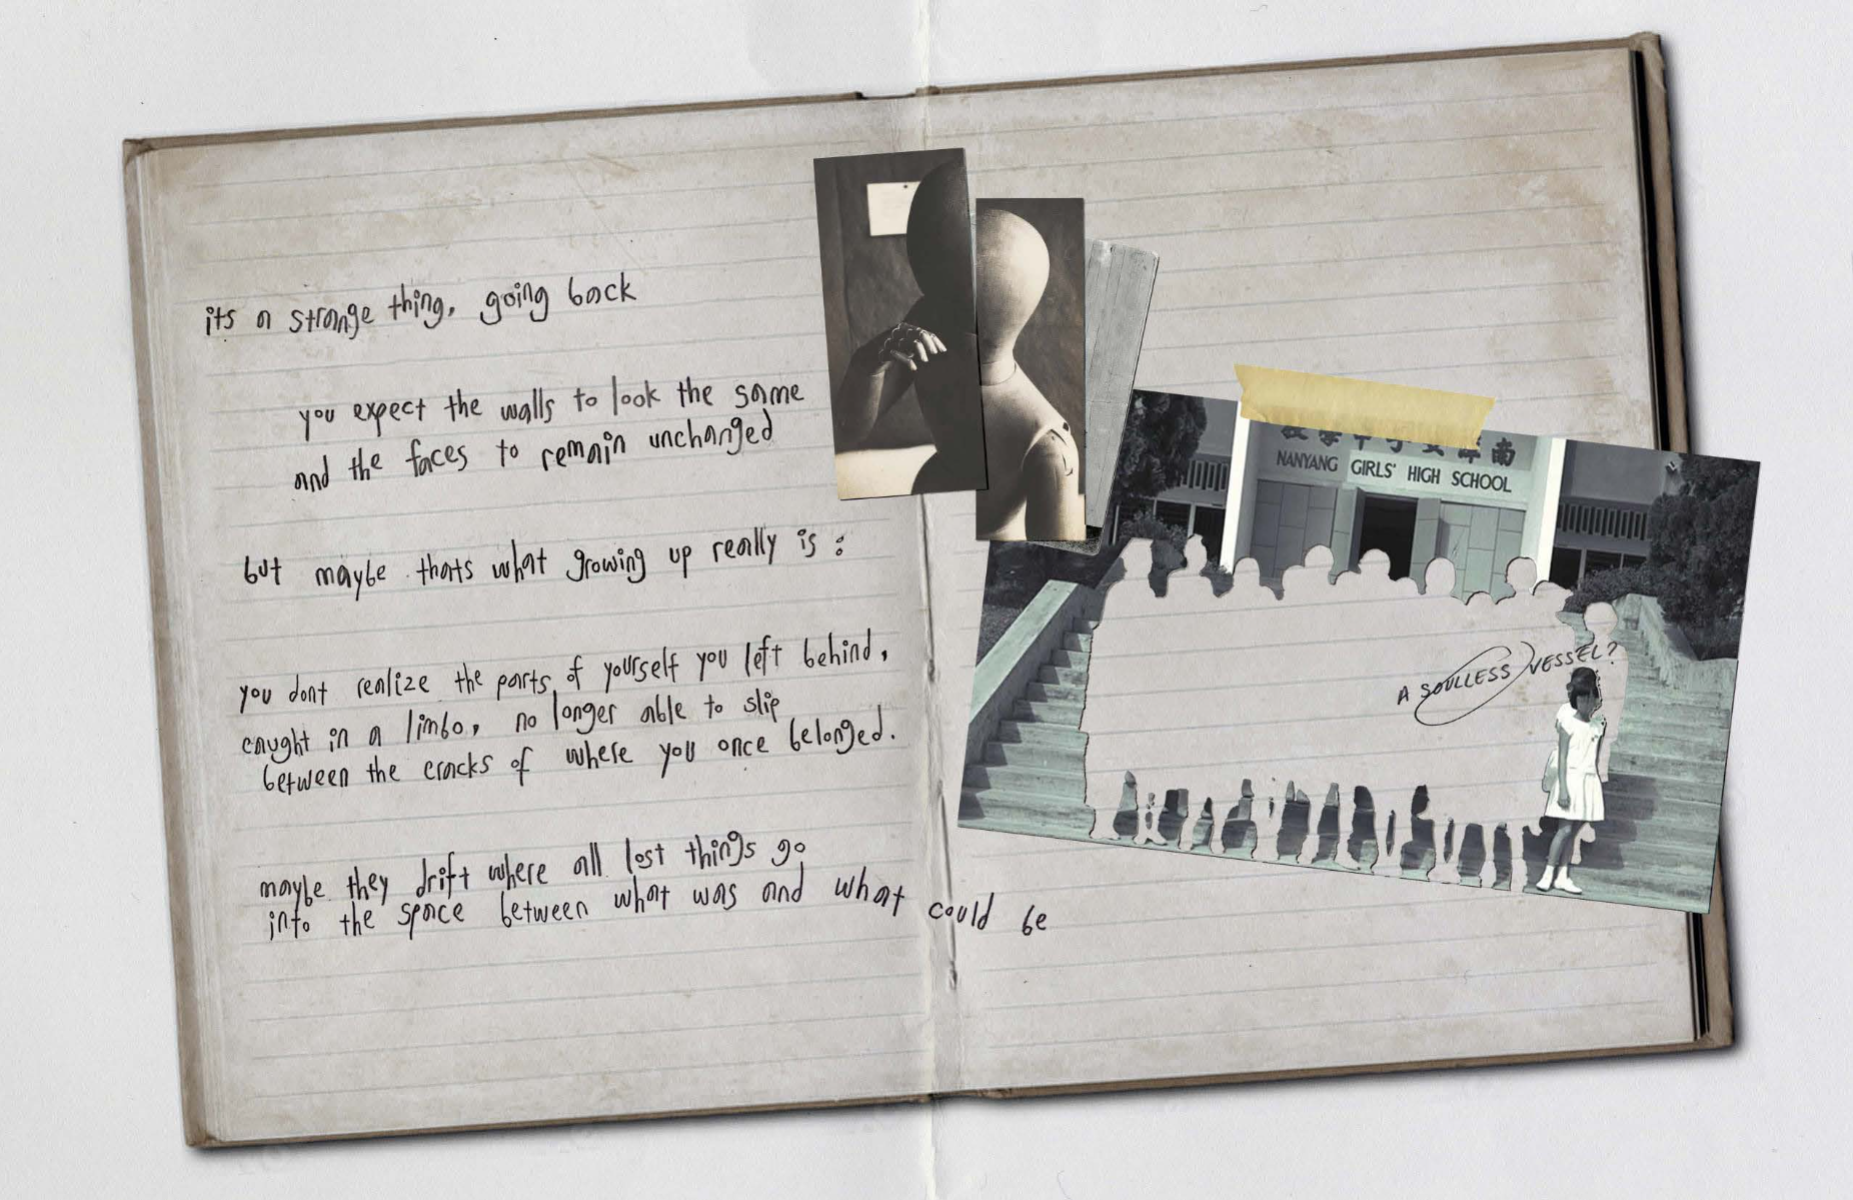 its a strange thing, going back
you expect the walls to look the same
and the faces to remain unchanged
but maybe thats what growing up really is :
you dont realize the parts of yourself you left behind,
caught in a limbo, no longer able to slip
between the cracks of where you once belonged.
maybe they drift where all lost things go
into the space between what was and what could be
NANYANG GIRLS' HIGH SCHOOL
A SOULLESS VESSEL?